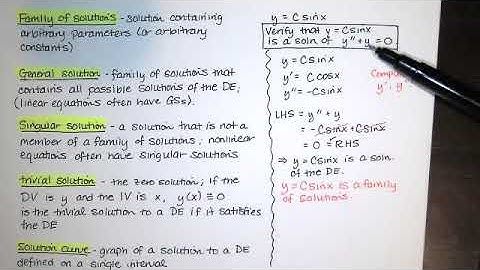 Family of solutions - solution containing
arbitrary parameters (or arbitrary
constants)
General solution - family of solutions that
contains all possible solutions of the DE;
(linear equations often have GSs).
Singular solution - a solution that is not a
member of a family of solutions; nonlinear
equations often have singular solutions
trivial solution - the zero solution; If the
DV is y and the IV is x, y(x) ≡ 0
is the trivial solution to a DE if it satisfies
the DE
Solution curve - graph of a solution to a DE
defined on a single interval
y = C sinx
Verify that y = C sinx
is a soln of y" + y = 0.
y = C sinx
y' = C cosx
y" = -C sinx
y', y"
LHS = y" + y
= -C sinx + C sinx
= 0 = RHS
⇒ y = C sinx is a soln.
of the DE.
y = C sinx is a family
of solutions.